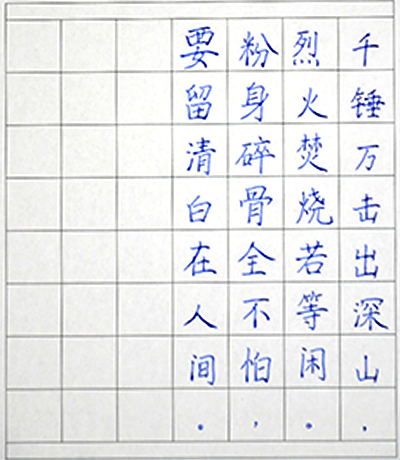 千锤万击出深山，
烈火焚烧若等闲。
粉身碎骨全不怕，
要留清白在人间。